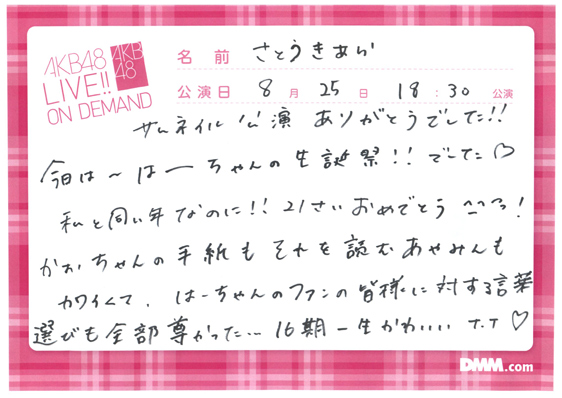 AKB48
LIVE!!
ON DEMAND
AKB
48
名前 さとうきあい
公演日 8月25日 18:30 公演
サムネイル公演 ありがとうでした!!
今日は〜はーちゃんの生誕祭!! でした♡
私と同い年なのに!! 21さいおめでとう ^^っ!
かおちゃんの手紙もそれを読むあやみんも
カワイくて、はーちゃんのファンの皆様に対する言葉
選びも全部尊かった… 16期一生かわいい T.T ♡
DMM.com